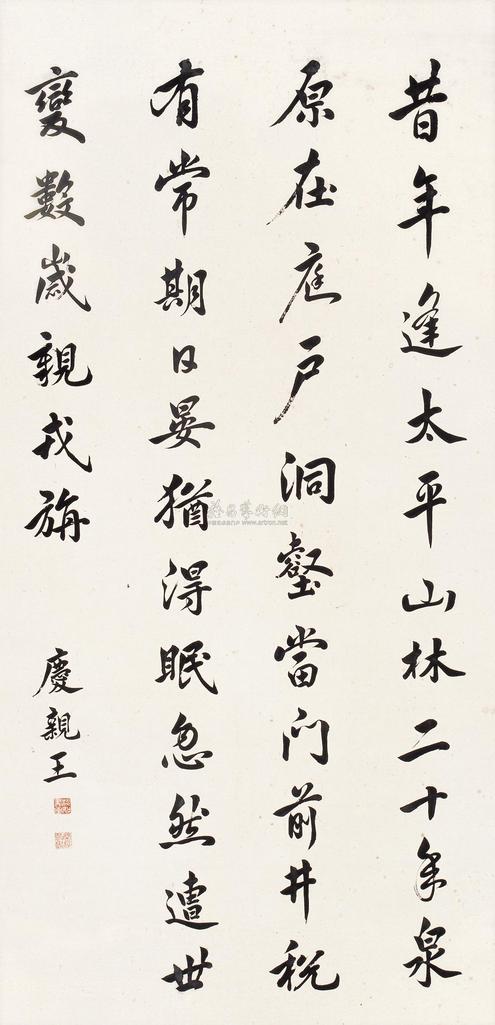 昔年逢太平山林二十年泉
原在庭户洞壑當门前井税
有常期日晏猶得眠忽然遭世
變數歲親戎旃
慶親王
www.artron.net